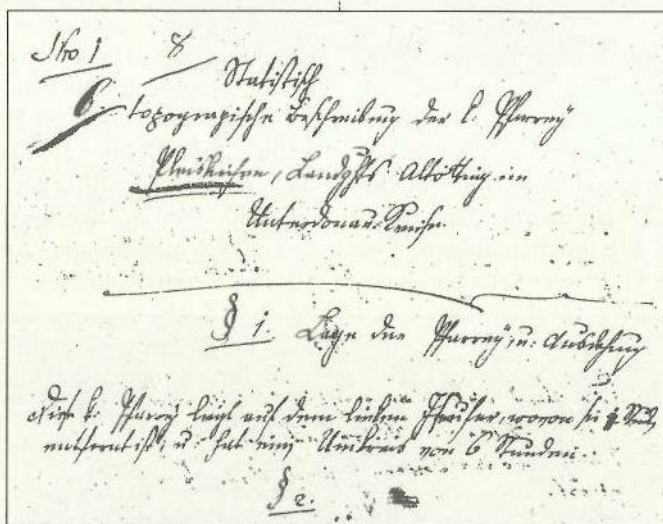 Nro 1 8
6. Statistisch
topograpische Beschreibung der k. Pfarrey
Pleiskirchen, Landgts Altötting im
Unterdonau-Kreise.
§ 1. Lage der Pfarrey, u. Ausdehung
Diese k. Pfarrey liegt auf dem linken Isenufer, wovon sie
entfernt ist, u. hat einen Umkreis von 6 Stunden.
§ 2.